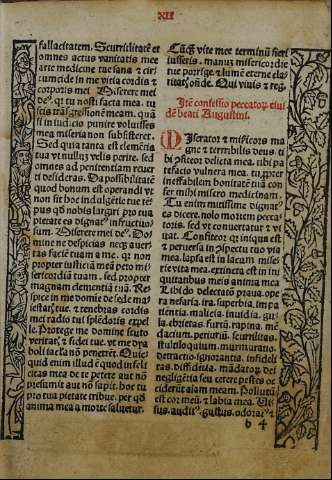 XII
fallacitatem. Scurrilitatẽ et
omnes actus vanitatis mee
arte medicine tue sana ⁊ cir
cumcide in me vitia cordis ⁊
corporis mei Miserere mei
de⁹. qꝛ tu nosti facta mea. tu
meam. quã
si in iudicio punire voluisses
mea miseria non subsisteret.
Sed quia tanta est clemẽtia
tua vt nullũ velis perire. sed
omnes ad penitentiam reuer
ti desideras. Da possibilitatẽ
quod bonum est operandi vt
non sit hoc indulgẽtie tue tẽ-
pus qð nobis largiri pro tua
pietate es dignat⁹ infructuo
sum. Miserere mei de⁹. Do
mine ne despicias neqꝫ auer
tas faciẽ tuam a me. qꝛ non
propter iusticiã meã peto mi
sericordia tuam. sed propter
magnam clementiã tuã. Re
spice in me domine de sede ma
iestat᷒ tue. ⁊ tenebras cordis
mei radio tui splẽdoris expel
le. Protege me domine scuto
veritat᷒. ⁊ fidei tue. vt me dya
boli iacľa nõ penetrẽt. Quic-
quid enim illud ẽ quod infeli
citas mea de te petere aut nõ
presumit aut nõ sapit. hoc tu
pro tua pietate tribue. per qð
anima mea a morte saluetur.
Cũqꝫ vite mee terminũ fieri
iusseris. manuʒ misericordie
tue porrige. ⁊ lumẽ eterne cla
ritat᷒ oñde. Qui viuis ⁊ reg.
Itẽ confessio peccatorꝫ eius
dẽ beati Augustini.
Miserator ⁊ misericors ma
gne ⁊ terribilis deus. ti
bi cõfiteor delicta mea. tibi pa
tefacio vulnera mea. tu propter
ineffabilem bonitatẽ tuã con
fer mihi misero medicinam.
Tu enim mitissime dignat⁹
es dicere. nolo mortem pecca
toris. sed vt conuertatur ⁊ vi
uat. Confiteor qꝛ iniqua est
⁊ peruersa in cõspectu tuo via
mea. lapsa est in lacum mise
rie vita mea. extincta est in ini
quitatibus meis anima mea
Libido. delectatio praua. ope
ra nefaria. ira. superbia. im pa
tientia. malicia. inuidia. gu
la. ebrietas. furtũ. rapina. mẽ
dacium. periuriũ. scurrilitas.
stultiloquium. murmuratio.
detractio. ignorantia. infideli
tas. diffidentia. mãdatorꝫ dei
negligẽtia seu cetere pestes oc
ciderũt aĩam meam. Pollutũ
est cor meũ ⁊ labia mea. Vi
sus. audit⁹. gustus. odorat⁹ ⁊
b 4